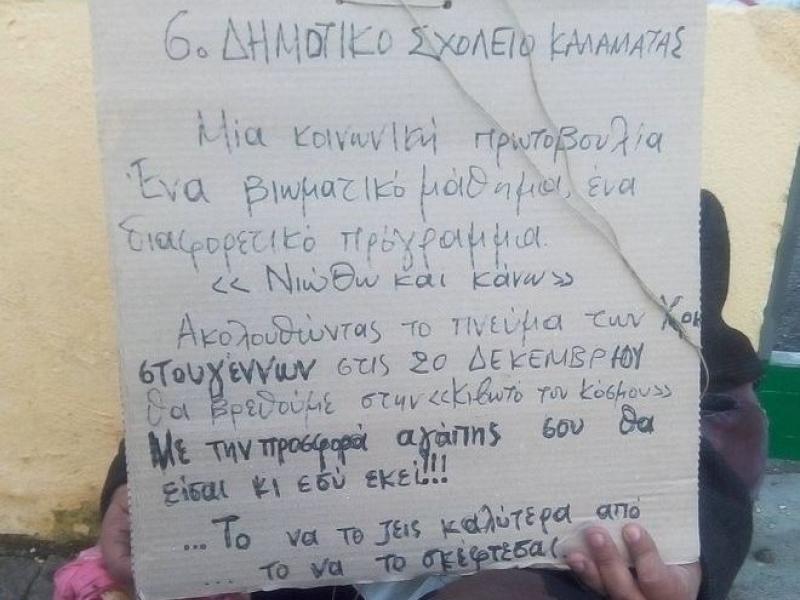 6ο ΔΗΜΟΤΙΚΟ ΣΧΟΛΕΙΟ ΚΑΛΑΜΑΤΑΣ
Μία κοινωνική πρωτοβουλία
Ένα βιωματικό μάθημα, ένα
διαφορετικό πρόγραμμα.
«Νιώθω και κάνω»
Ακολουθώντας το πνεύμα των
στουγέννων στις 20 ΔΕΚΕΜΒΡΙΟΥ
θα βρεθούμε στην «Κιβωτό του Κόσμου»
Με την προσφορά αγάπης σου θα
είσαι κι εσύ εκεί!!!
...Το να το ζεις καλύτερα από
... το να το σκέφτεσαι.